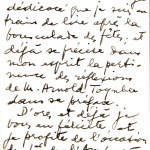 dédicacé que je suis en
train de lire après la
bousculade des fêtes, et
déjà se précise dans
mon esprit la perti-
nence des réflexions
de M. Arnold Toynbee
dans sa préface.
D'ores et déjà je
vous en félicite, et
je profite de l'occasion